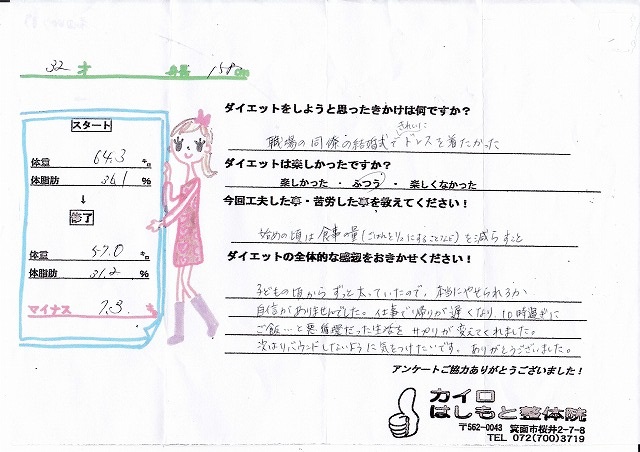 32 才 身長 158cm
スタート
体重 64.3 キロ
体脂肪 36.1 %
↓
終了
体重 57.0 キロ
体脂肪 31.2 %
マイナス 7.3 キロ
ダイエットをしようと思ったきかけは何ですか？
職場の同僚の結婚式できれいにドレスを着たかった
ダイエットは楽しかったですか？
楽しかった ・ ふつう ・ 楽しくなかった
今回工夫した事・苦労した事を教えてください！
始めの頃は食事の量(ごはんを にすることなど)を減らすこと
ダイエットの全体的な感想をおきかせください！
子どもの頃からずっと太っていたので、本当にやせられるか
自信がありませんでした。仕事で帰りが遅くなり、10時過ぎに
ご飯…と悪循環だった生活を サカリが変えてくれました。
次はリバウンドしないように気をつけたいです。ありがとうございました。
アンケートご協力ありがとうございました！
カイロ
はしもと整体院
〒562-0043 箕面市桜井2-7-8
TEL 072(700)3719